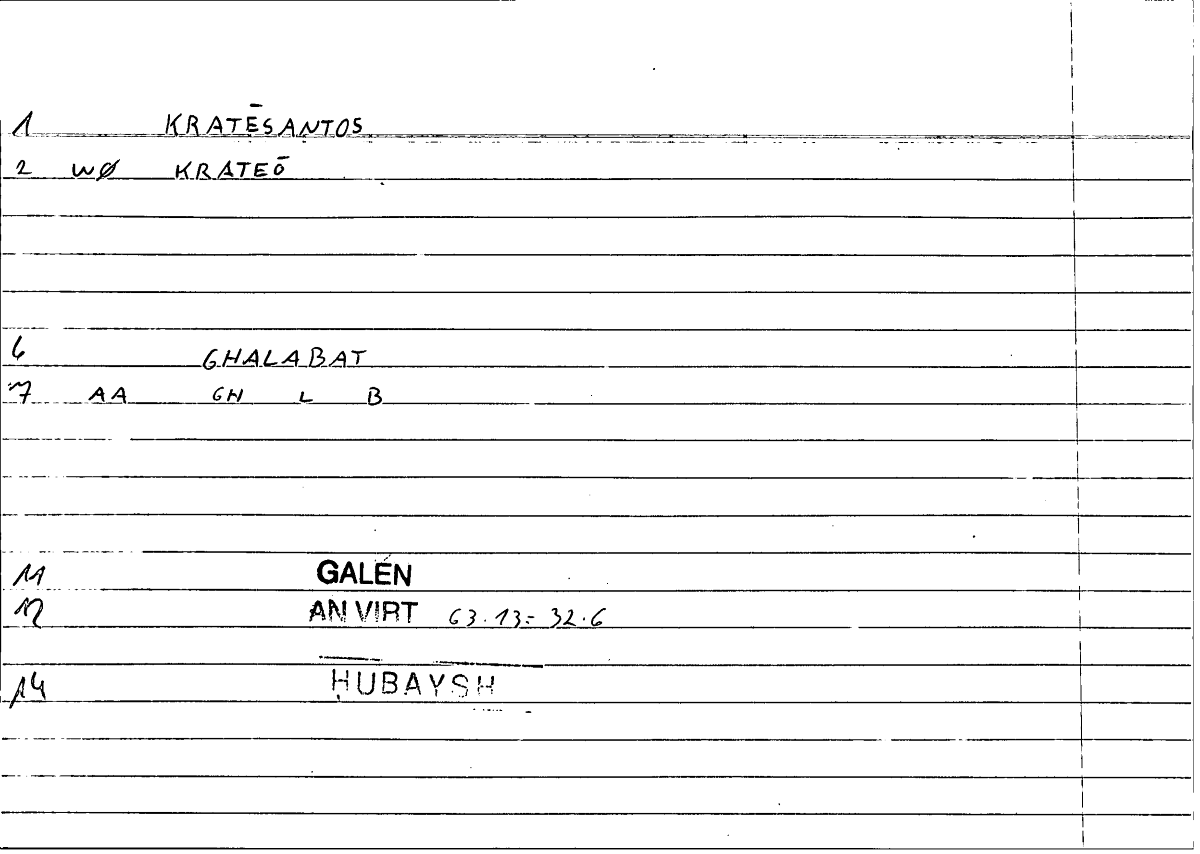 1 KRATĒSANTOS
2 WØ KRATEŌ
6 GHALABAT
7 AA GH L B
11 GALĒN
12 AN VIRT 63.13 = 32.6
14 ḤUBAYSH